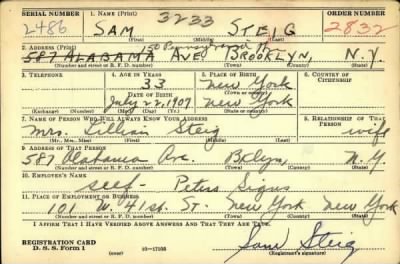 SERIAL NUMBER 1. NAME (Print) ORDER NUMBER
2486 SAM 3233 STEIG 2832
(First) (Middle) (Last)
2. ADDRESS (Print)
587 ALABAMA AVE BROOKLYN, N.Y.
(Number and street or R. F. D. number) (Town) (County) (State)
3. TELEPHONE 4. AGE IN YEARS 5. PLACE OF BIRTH 6. COUNTRY OF CITIZENSHIP
33 New York
DATE OF BIRTH (Town or county)
July 22, 1907 New York
(Exchange) (No.) (Mo.) (Day) (Yr.) (State or country)
7. NAME OF PERSON WHO WILL ALWAYS KNOW YOUR ADDRESS 8. RELATIONSHIP OF THAT PERSON
Mrs. Lillian Steig wife
(Mr., Mrs., Miss) (First) (Middle) (Last)
9. ADDRESS OF THAT PERSON
587 Alabama Ave. Bklyn, N.Y.
(Number and street or R. F. D. number) (Town) (County) (State)
10. EMPLOYER'S NAME
self - Peters Signs
11. PLACE OF EMPLOYMENT OR BUSINESS
101 W. 41st. St. New York New York
(Number and street or R. F. D. number) (Town) (County) (State)
I AFFIRM THAT I HAVE VERIFIED ABOVE ANSWERS AND THAT THEY ARE TRUE.
REGISTRATION CARD
D. S. S. Form 1 (over) Sam Steig
(Registrant's signature)